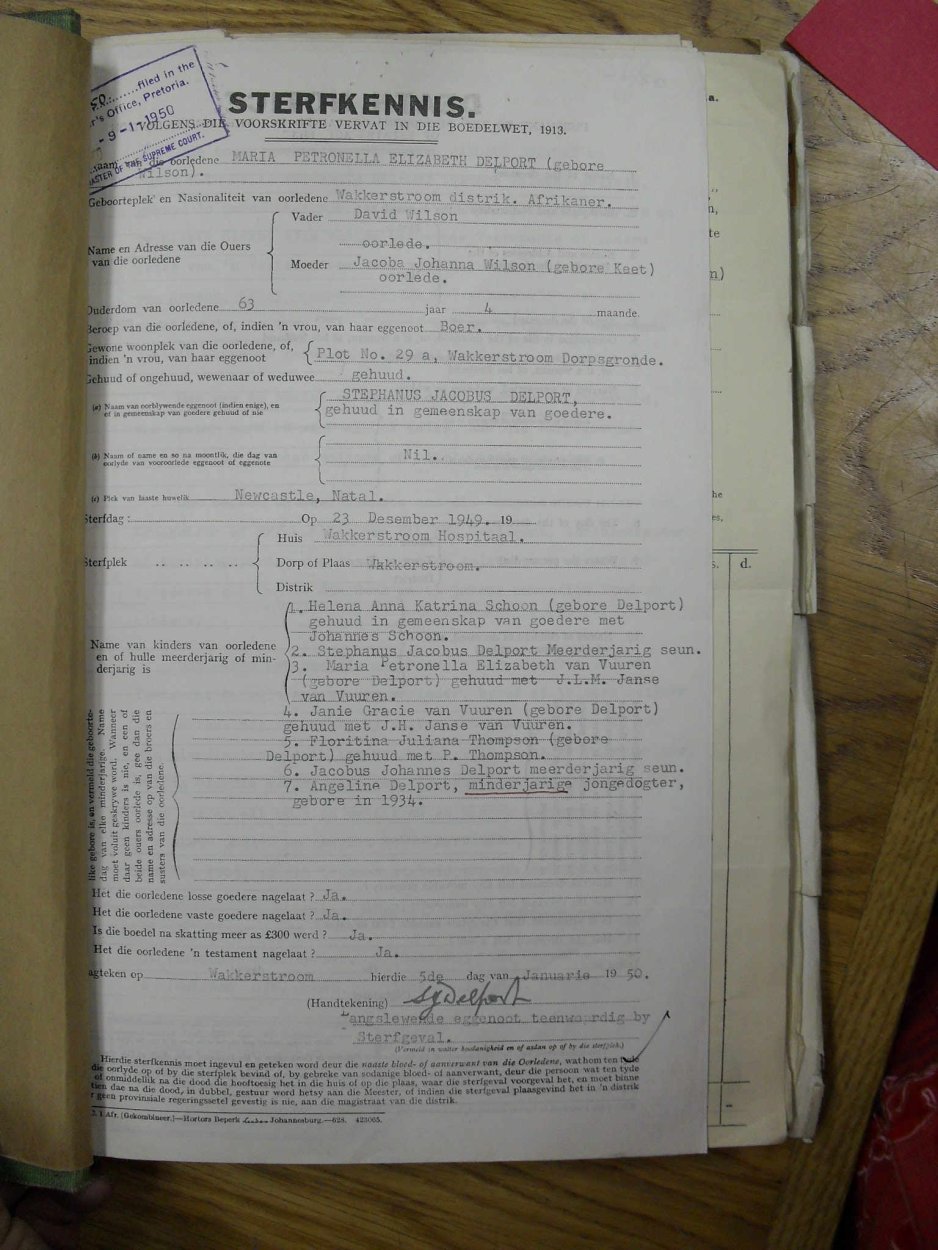 filed in the
Office, Pretoria.
-9-1-1950
MASTER OF THE SUPREME COURT.
STERFKENNIS.
VOLGENS DIE VOORSKRIFTE VERVAT IN DIE BOEDELWET, 1913.
die oorledene MARIA PETRONELLA ELIZABETH DELPORT (gebore
Wilson).
Geboorteplek en Nasionaliteit van oorledene Wakkerstroom distrik. Afrikaner.
Name en Adresse van die Ouers
van die oorledene
Vader David Wilson
oorlede.
Moeder Jacoba Johanna Wilson (gebore Keet)
oorlede.
Ouderdom van oorledene 63 jaar 4 maande
Beroep van die oorledene, of, indien 'n vrou, van haar eggenoot Boer.
Gewone woonplek van die oorledene, of,
indien 'n vrou, van haar eggenoot
Plot No. 29 a, Wakkerstroom Dorpsgronde.
Gehuud of ongehuud, wewenaar of weduwee gehuud.
(a) Naam van oorblywende eggenoot (indien enige), en
of in gemeenskap van goedere gehuud of nie
STEPHANUS JACOBUS DELPORT,
gehuud in gemeenskap van goedere.
(b) Naam of name en so na moontlik, die dag van
oorlyde van vooroorlede eggenoot of eggenote
Nil.
(c) Plek van laaste huwelik Newcastle, Natal.
Sterfdag: Op 23 Desember 1949. 19
Sterfplek .. .. .. ..
Huis Wakkerstroom Hospitaal.
Dorp of Plaas Wakkerstroom.
Distrik
Name van kinders van oorledene
en of hulle meerderjarig of min-
derjarig is
1. Helena Anna Katrina Schoon (gebore Delport)
gehuud in gemeenskap van goedere met
Johannes Schoon.
2. Stephanus Jacobus Delport Meerderjarig seun.
3. Maria Petronella Elizabeth van Vuuren
(gebore Delport) gehuud met J.L.M. Janse
van Vuuren.
4. Janie Gracie van Vuuren (gebore Delport)
gehuud met J.H. Janse van Vuuren.
5. Floritina Juliana Thompson (gebore
Delport) gehuud met P. Thompson.
6. Jacobus Johannes Delport meerderjarig seun.
7. Angeline Delport, minderjarige jongedogter,
gebore in 1934.
like gebore is, en vermeld die geboorte-
dag van elke minderjarige. Name
moet voluit geskrywe word. Wanneer
daar geen kinders is nie, en een of
beide ouers oorlede is, gee dan die
name en adresse op van die broers en
susters van die oorledene.
Het die oorledene losse goedere nagelaat ? Ja.
Het die oorledene vaste goedere nagelaat ? Ja.
Is die boedel na skatting meer as £300 werd ? Ja.
Het die oorledene 'n testament nagelaat ? Ja.
agteken op Wakkerstroom hierdie 5de dag van Januarie 19 50.
(Handtekening) SJ Delport
Langslewende eggenoot teenwoordig by
Sterfgeval.
(Vermeld in watter hoedanigheid en of aldan op of by die sterfplek.)
Hierdie sterfkennis moet ingevul en geteken word deur die naaste bloed- of aanverwant van die Oorledene, wat hom ten tyde
die oorlyde op of by die sterfplek bevind of, by gebreke van sodanige bloed- of aanverwant, deur die persoon wat ten tyde
of onmiddellik na die dood die hooftoesig het in die huis of op die plaas, waar die sterfgeval voorgeval het, en moet binne
tien dae na die dood, in dubbel, gestuur word hetsy aan die Meester, of indien die sterfgeval plaasgevind het in 'n distrik
geen provinsiale regeringssetel gevestig is nie, aan die magistraat van die distrik.
Afr. [Gekombineer.]—Hortors Beperk Johannesburg.—628. 423065.
a.
te
he
es,
s. d.